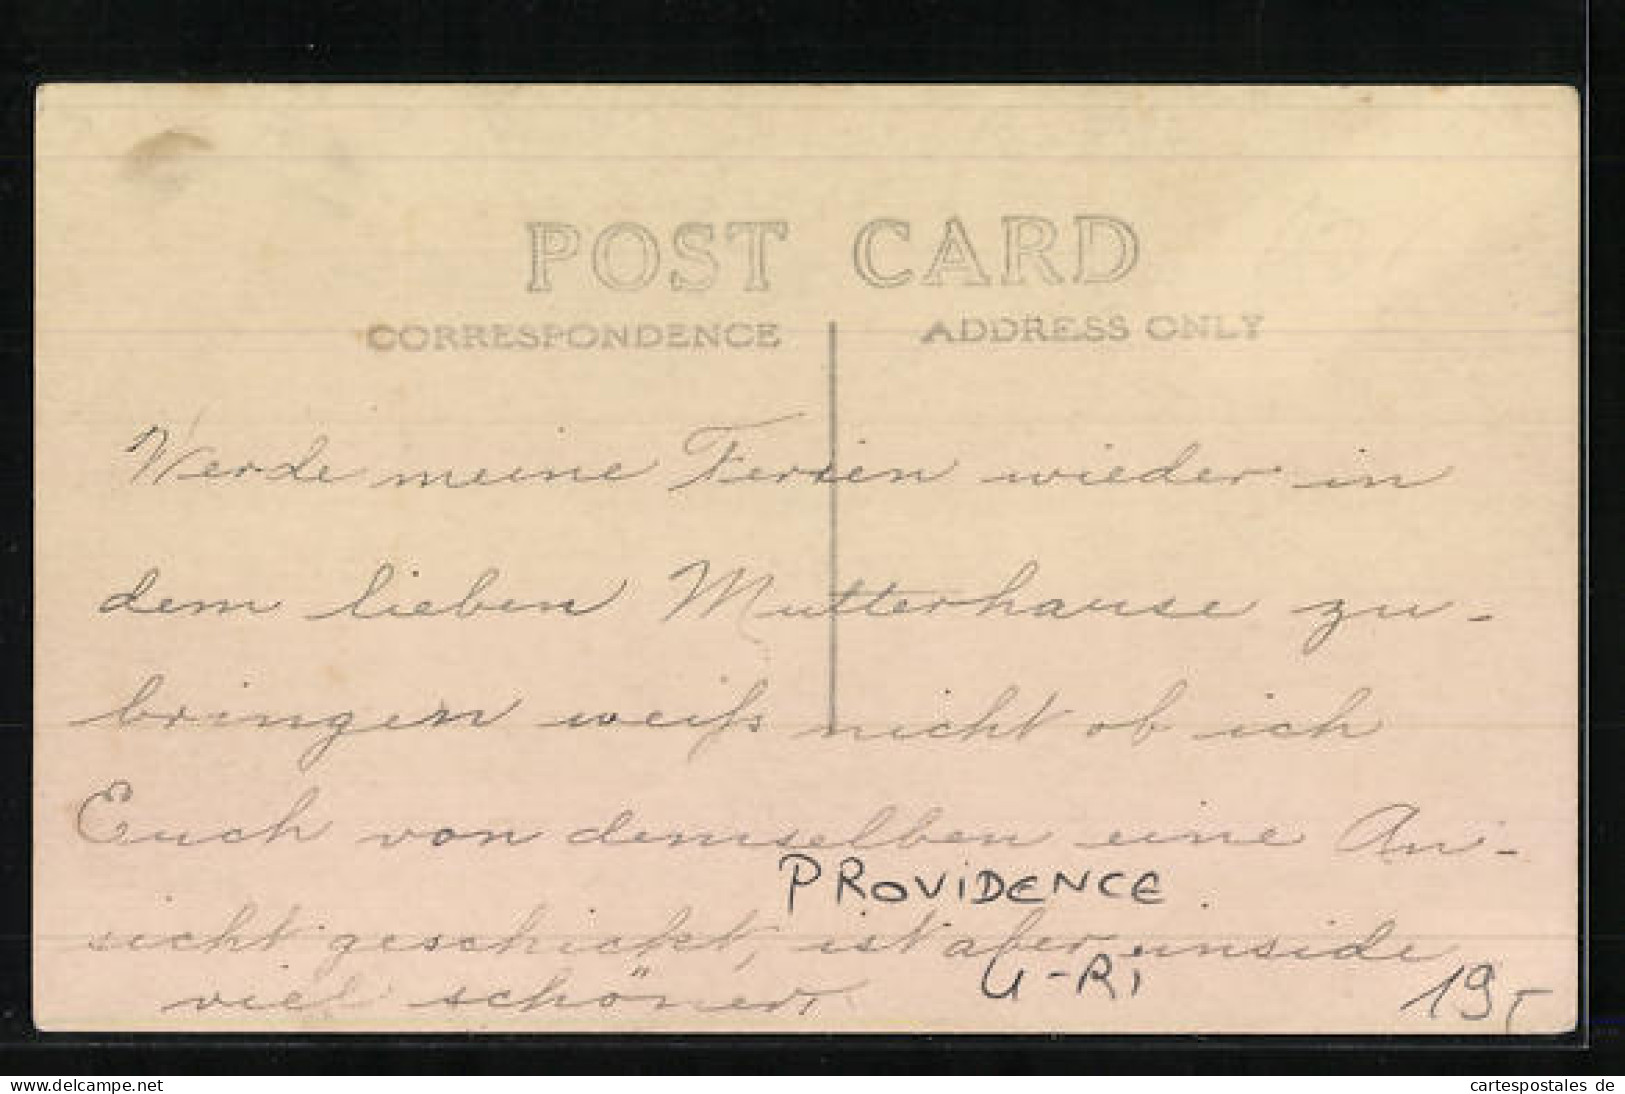 POST CARD
CORRESPONDENCE
ADDRESS ONLY
Werde meine Ferien wieder in
dem lieben Mutterhause zu-
bringen weiß nicht ob ich
Euch von demselben eine An-
sicht geschickt, ist aber unside
viel schöner.
PROVIDENCE
U-RI
19,-
www.oldthing.de
cartespostales de